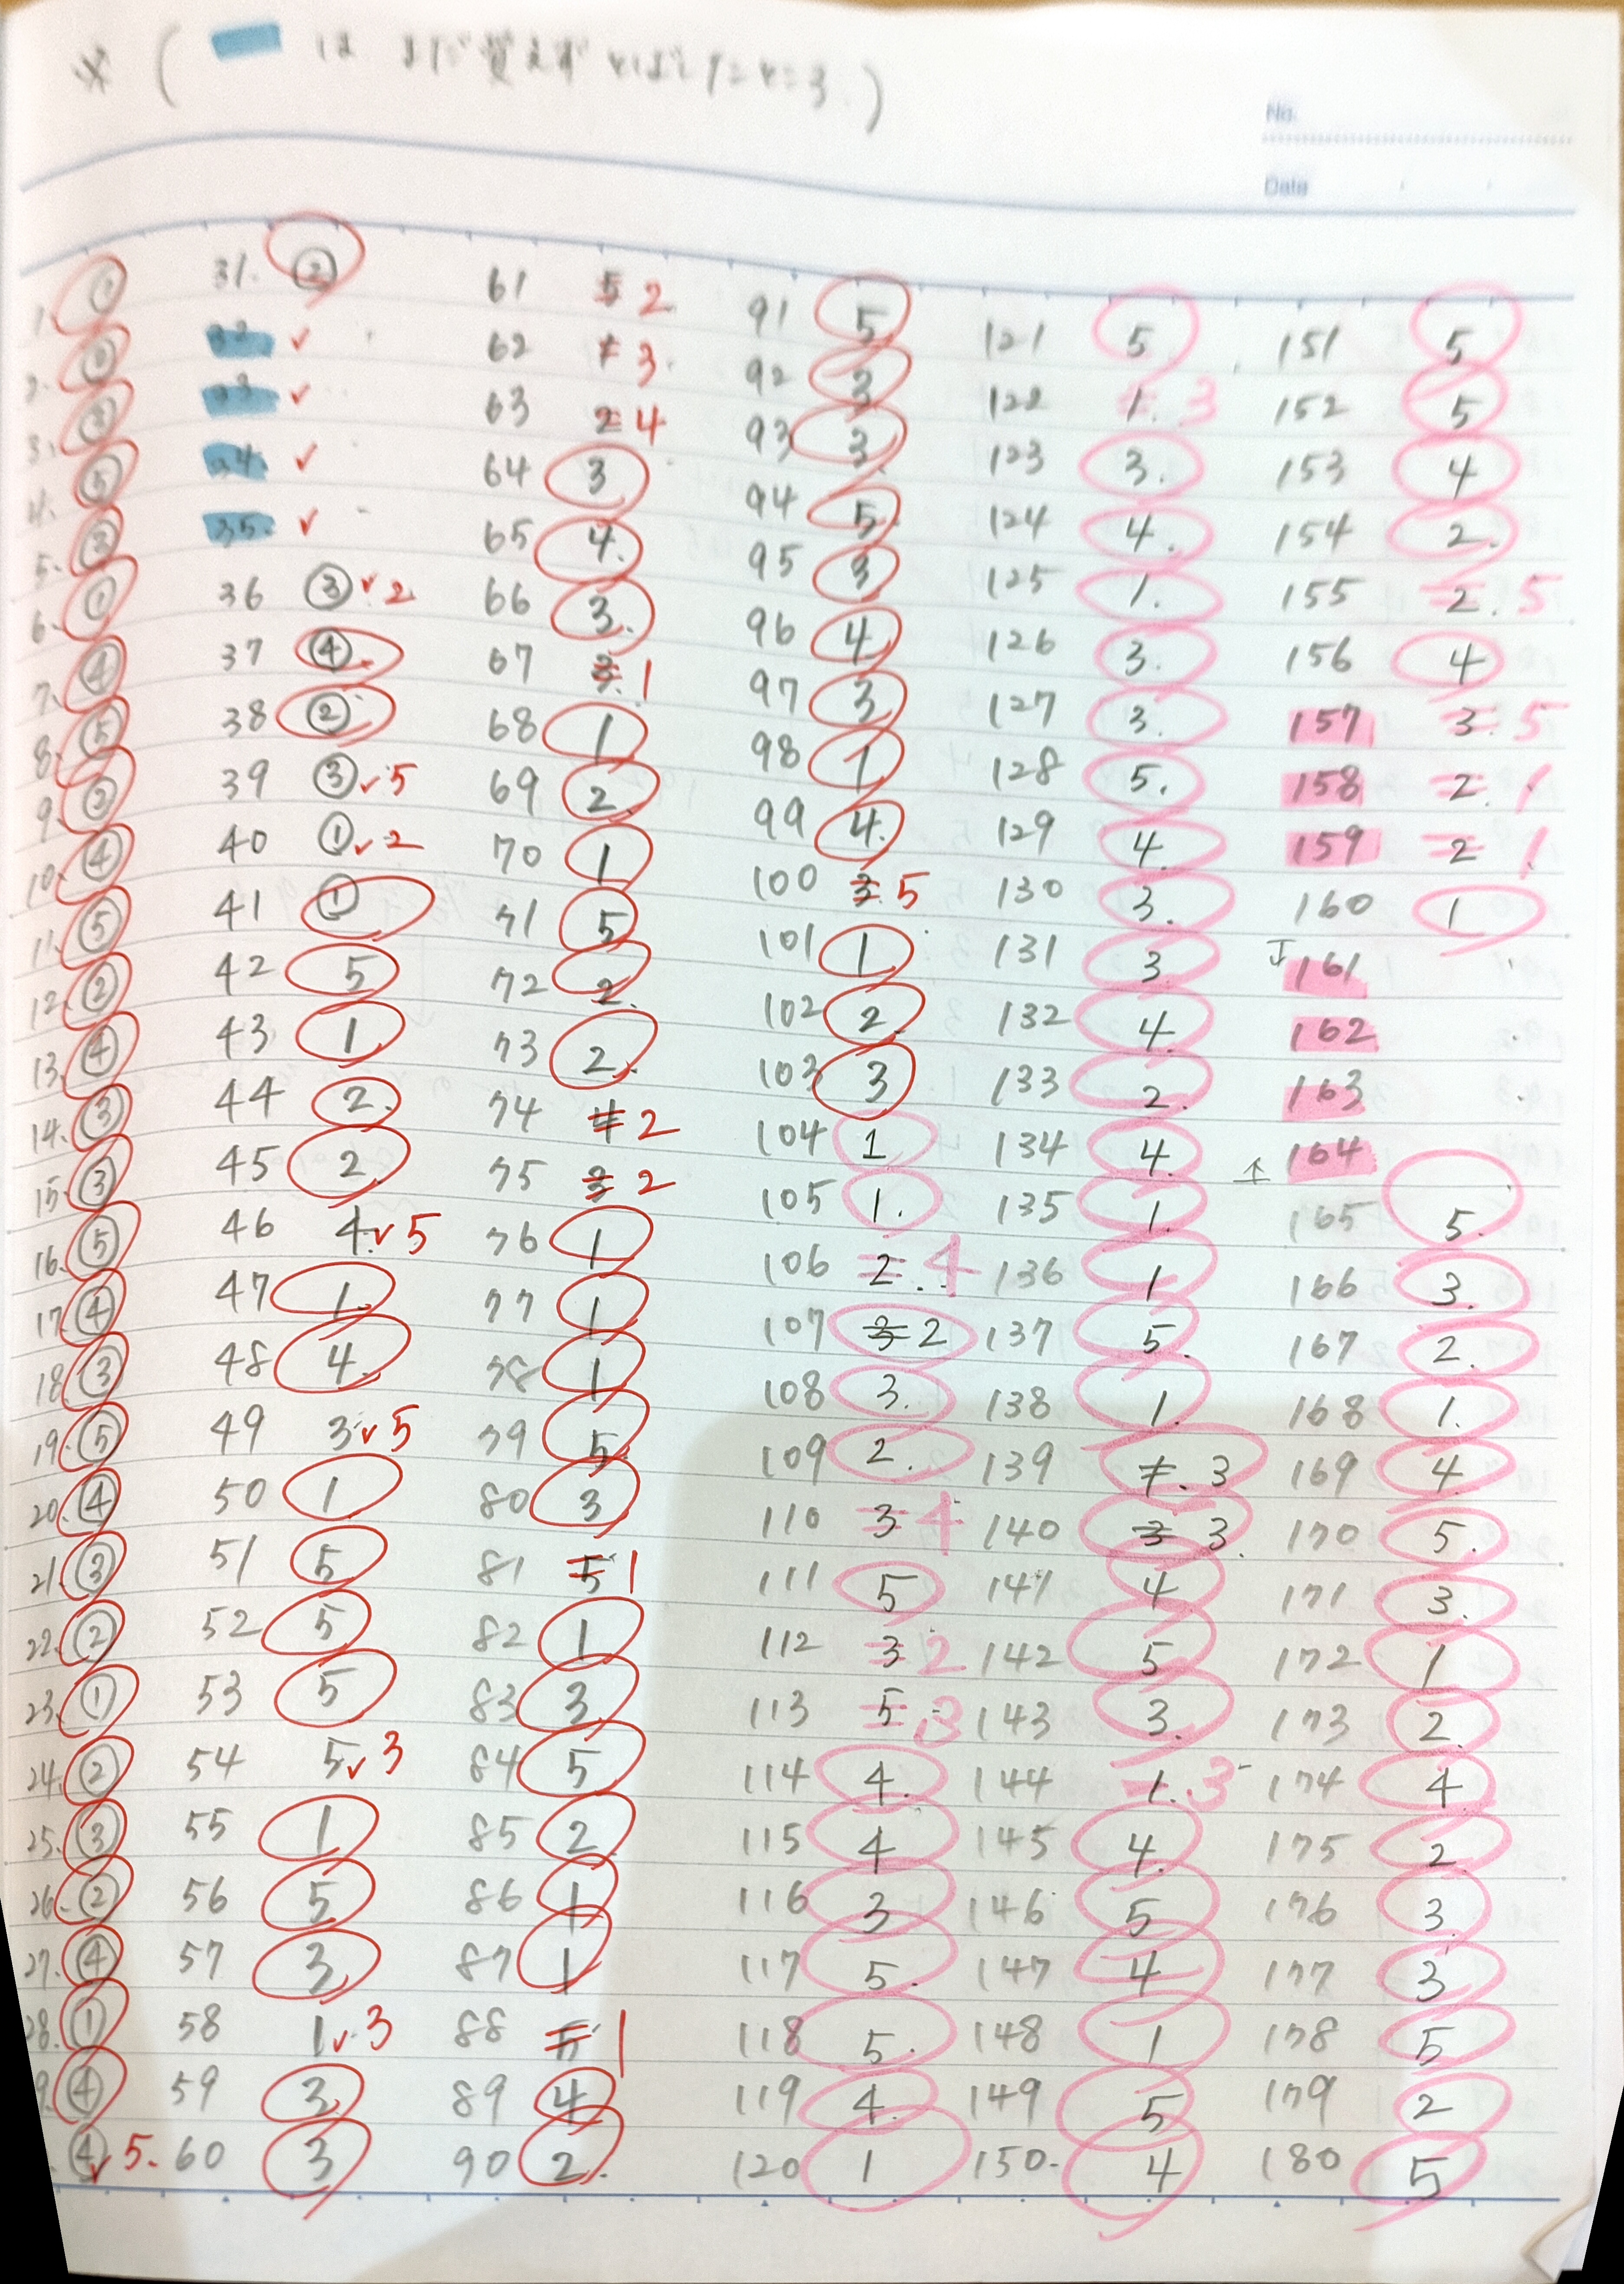 ※ ( は まだ覚えず )
No.
Date
1. ①
2.
3. ③
4. ⑤
5. ③
6. ①
7. ④
8. ⑤
9. ②
10. ④
11. ⑤
12. ②
13. ④
14. ③
15. ③
16. ⑤
17. ④
18. ③
19. ⑤
20. ④
21. ③
22. ②
23. ①
24. ②
25. ③
26. ②
27. ④
28. ①
9. ④
④ ✓ 5.
31. ②
32 ✓
33 ✓
34 ✓
35. ✓
36 ③ ✓ 2
37 ④
38 ②
39 ③ ✓ 5
40 ① ✓ 2
41 ①
42 5
43 1
44 2.
45 2
46 4. ✓ 5
47 1.
48 4.
49 3 ✓ 5
50 1
51 5
52 5
53 5
54 5 ✓ 3
55 1
56 5
57 3
58 1 ✓ 3
59 3
60 3
61 5 2
62 1 3.
63 2 4
64 3
65 4.
66 3.
67 3. 1
68 1
69 2
70 1
71 5
72 2.
73 2.
74 4 2
75 3 2
76 1
77 1
78 1
79 5
80 3
81 5 1
82 1
83 3.
84 5
85 2
86 1
87 1
88 5 1
89 4
90 2.
91 5
92 3
93 3
94 5
95 3
96 4
97 3
98 1
99 4.
100 3 5
101 1
102 2
103 3
104 1
105 1.
106 2. 4
107 3 2
108 3.
109 2.
110 3 4
111 5
112 3 2
113 5 3
114 4.
115 4
116 3
117 5.
118 5.
119 4.
120 1
121 5
122 1. 3
123 3.
124 4.
125 1.
126 3.
127 3.
128 5.
129 4.
130 3.
131 3
132 4.
133 2.
134 4.
135 1.
136 1
137 5.
138 1.
139 1. 3
140 3 3.
141 4
142 5
143 3.
144 1. 3
145 4.
146 5
147 4
148 1
149 5
150. 4
151 5
152 5
153 4
154 2.
155 2. 5
156 4
157 3. 5
158 2. 1
159 2 1
160 1
↓ 161
162
163
↑ 164
165 5.
166 3.
167 2.
168 1.
169 4.
170 5.
171 3.
172 1
173 2.
174 4
175 2
176 3
177 3
178 5
179 2
180 5